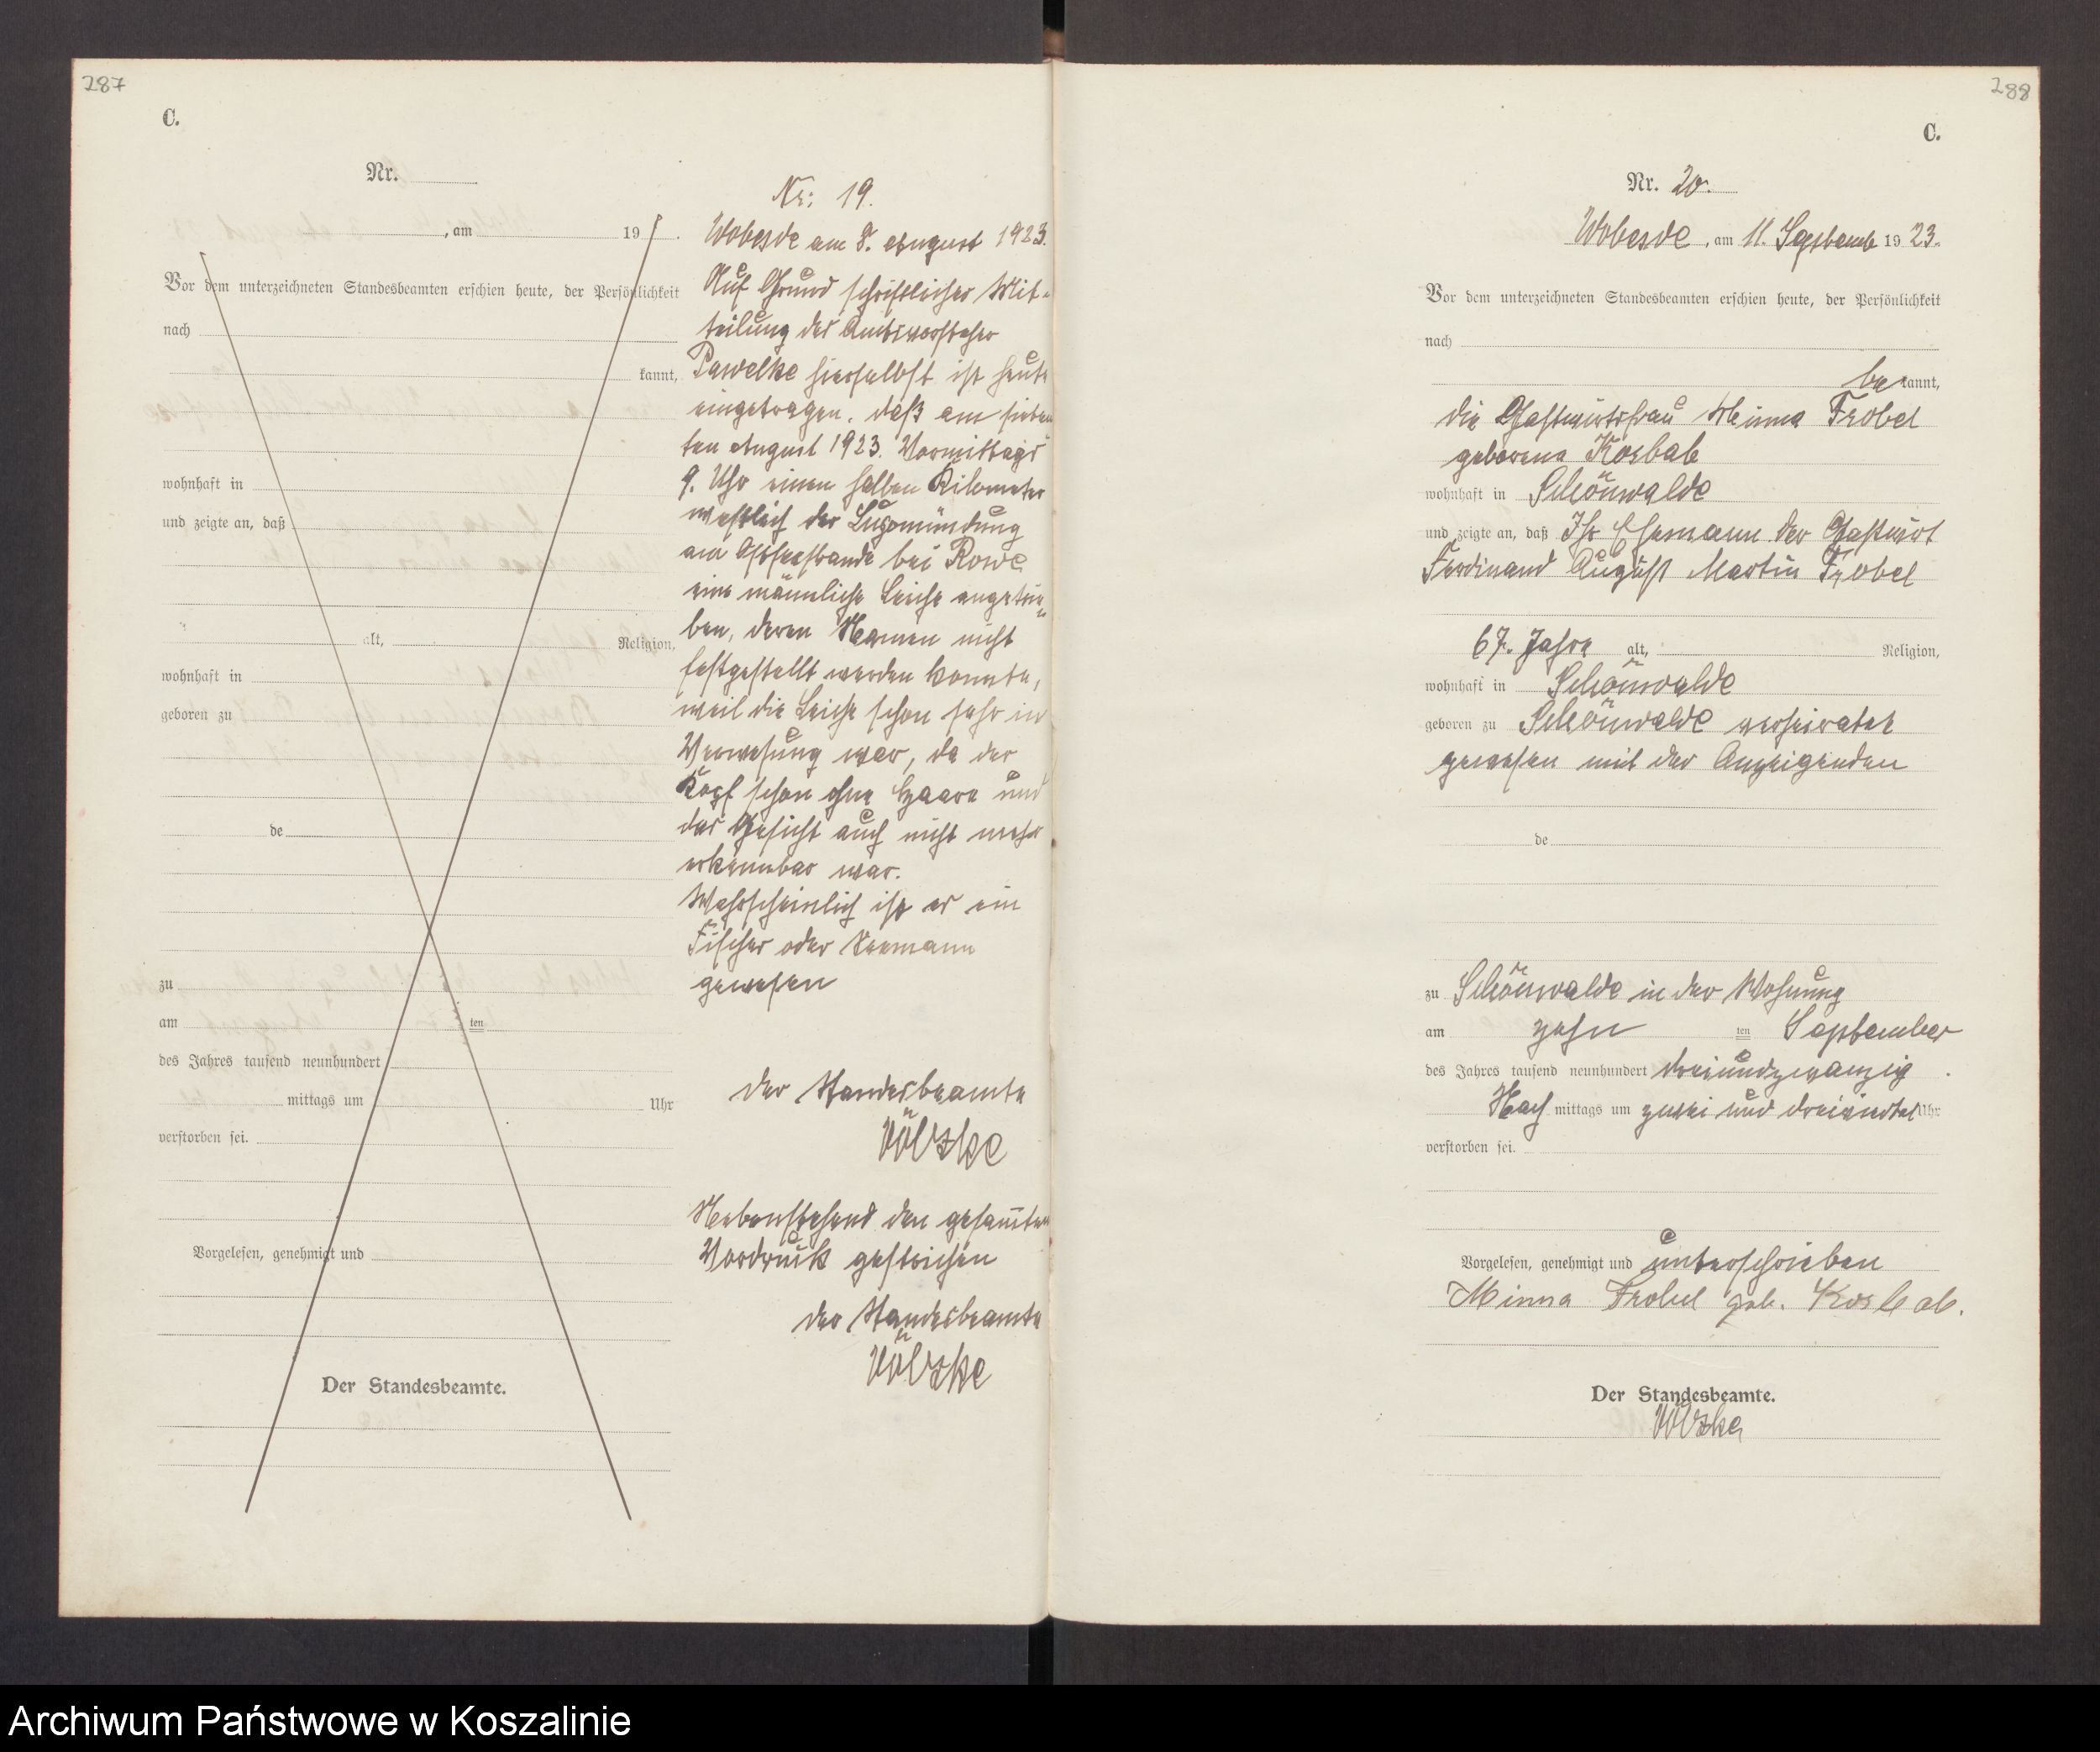 287
C.
Nr.
, am 19 .
Vor dem unterzeichneten Standesbeamten erschien heute, der Persönlichkeit
nach
kannt,
wohnhaft in
und zeigte an, daß
alt, Religion,
wohnhaft in
geboren zu
de
zu
am ten
des Jahres tausend neunhundert
mittags um Uhr
verstorben sei.
Vorgelesen, genehmigt und
Der Standesbeamte.
Nr: 19.
Wobesde am 8. August 1923.
Auf Grund schriftlicher Mit-
teilung des Amtsvorsteher
Pawelke hierselbst ist heute
eingetragen, daß am sieben
ten August 1923. Vormittags
9. Uhr einen halben Kilometer
westlich der Lupomündung
am Ostseestrande bei Rowe
eine männliche Leiche angetrie-
ben, deren Namen nicht
festgestellt werden konnte,
weil die Leiche schon sehr in
Verwesung war, da der
Kopf schon ohne Haare und
das Gesicht auch nicht mehr
erkennbar war.
Wahrscheinlich ist er ein
Fischer oder Seemann
gewesen
Der Standesbeamte
Völzke
Nebenstehend den gesamten
Vordruck gestrichen
Der Standesbeamte
Völzke
288
C.
Nr. 20.
Wobesde, am 11. Septemb 1923.
Vor dem unterzeichneten Standesbeamten erschien heute, der Persönlichkeit
nach
bekannt,
die Gastwirtsfrau Minna Frobel
geborene Kosbab
wohnhaft in Schönwalde
und zeigte an, daß Ihr Ehemann der Gastwirt
Ferdinand August Martin Frobel
67. Jahre alt, Religion,
wohnhaft in Schönwalde
geboren zu Schönwalde verheiratet
gewesen mit der Anzeigenden
de
zu Schönwalde in der Wohnung
am zehn ten September
des Jahres tausend neunhundert dreiundzwanzig
Nach mittags um zwei und dreiviertel Uhr
verstorben sei.
Vorgelesen, genehmigt und unterschrieben
Minna Frobel geb. Kosbab.
Der Standesbeamte.
Völzke
Archiwum Państwowe w Koszalinie